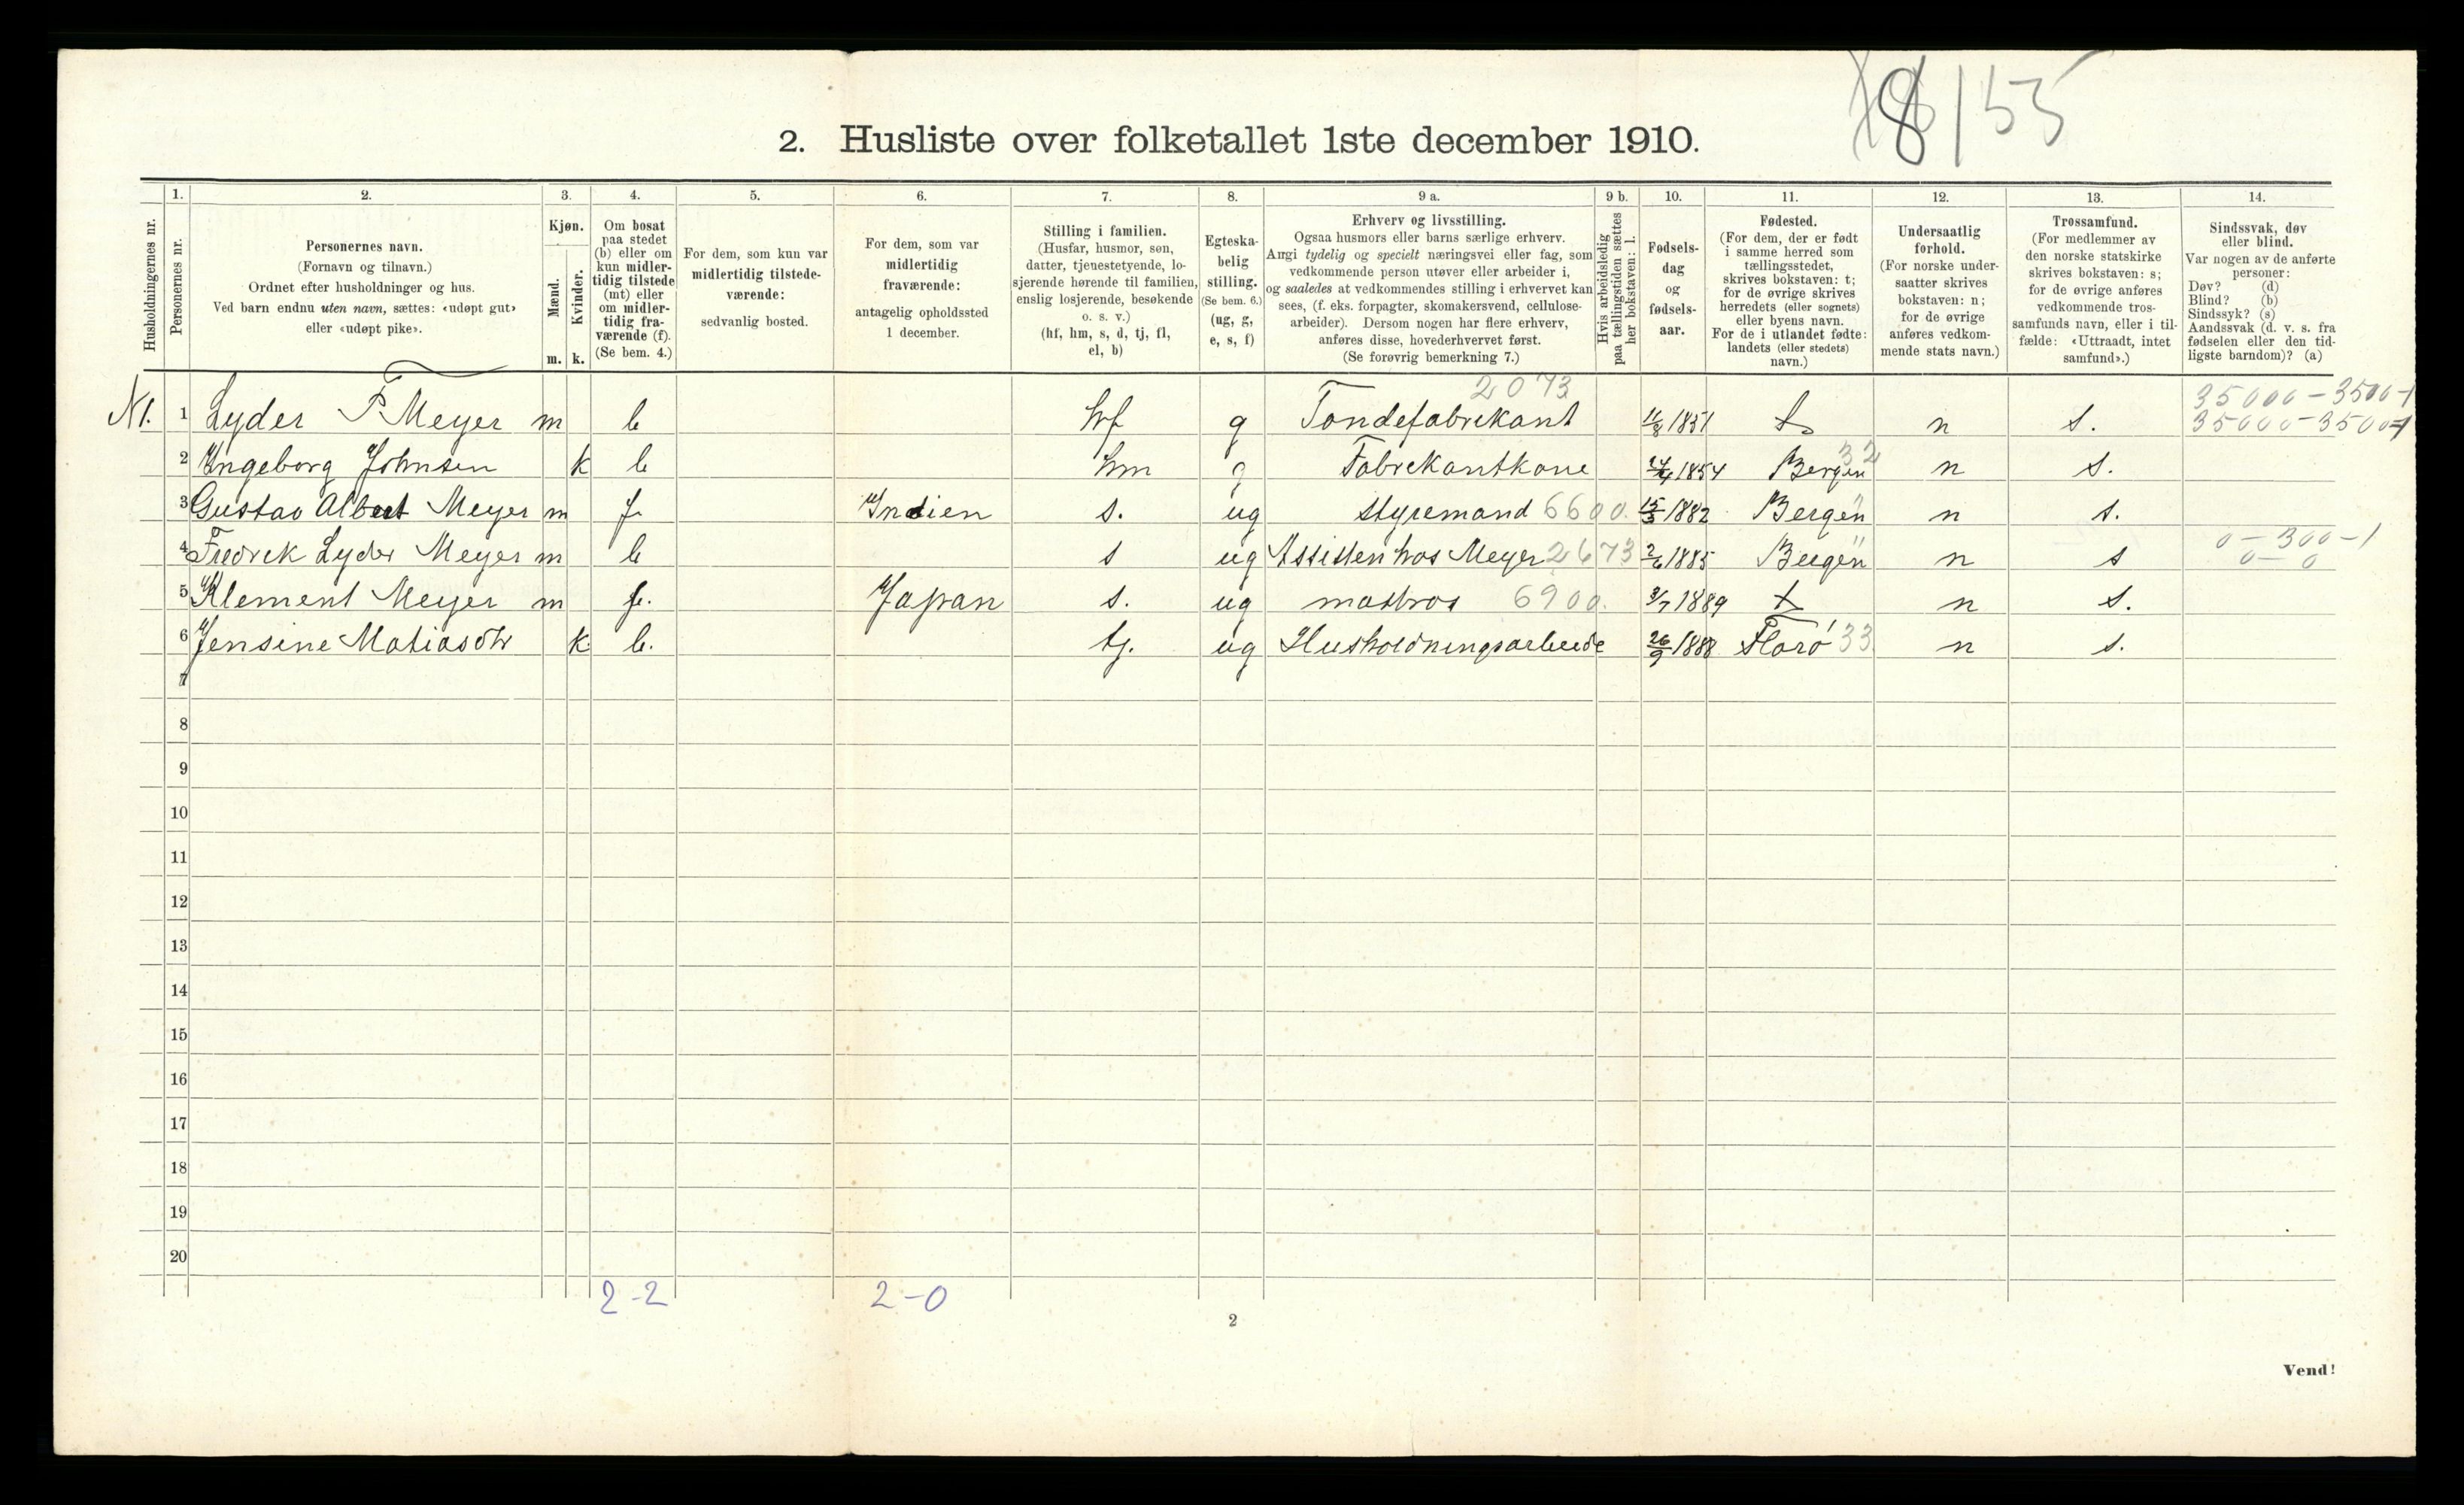 8/55
2. Husliste over folketallet 1ste december 1910.
Husholdningernes nr.
1. Personernes nr.
2. Personernes navn.
(Fornavn og tilnavn.)
Ordnet efter husholdninger og hus.
Ved barn endnu uten navn, sættes: «udøpt gut»
eller «udøpt pike».
3. Kjøn.
Mænd. m.
Kvinder. k.
4. Om bosat
paa stedet
(b) eller om
kun midler-
tidig tilstede
(mt) eller
om midler-
tidig fra-
værende (f).
(Se bem. 4.)
5. For dem, som kun var
midlertidig tilstede-
værende:
sedvanlig bosted.
6. For dem, som var
midlertidig
fraværende:
antagelig opholdssted
1 december.
7. Stilling i familien.
(Husfar, husmor, søn,
datter, tjenestetyende, lo-
sjerende hørende til familien,
enslig losjerende, besøkende
o. s. v.)
(hf, hm, s, d, tj, fl,
el, b)
8. Egteska-
belig
stilling.
(Se bem. 6.)
(ug, g,
e, s, f)
9 a. Erhverv og livsstilling.
Ogsaa husmors eller barns særlige erhverv.
Angi tydelig og specielt næringsvei eller fag, som
vedkommende person utøver eller arbeider i,
og saaledes at vedkommendes stilling i erhvervet kan
sees, (f. eks. forpagter, skomakersvend, cellulose-
arbeider). Dersom nogen har flere erhverv,
anføres disse, hovederhvervet først.
(Se forøvrig bemerkning 7.)
9 b. Hvis arbeidsledig
paa tællingstiden sættes
her bokstaven: l.
10. Fødsels-
dag
og
fødsels-
aar.
11. Fødested.
(For dem, der er født
i samme herred som
tællingsstedet,
skrives bokstaven: t;
for de øvrige skrives
herredets (eller sognets)
eller byens navn.
For de i utlandet fødte:
landets (eller stedets)
navn.)
12. Undersaatlig
forhold.
(For norske under-
saatter skrives
bokstaven: n;
for de øvrige
anføres vedkom-
mende stats navn.)
13. Trossamfund.
(For medlemmer av
den norske statskirke
skrives bokstaven: s;
for de øvrige anføres
vedkommende tros-
samfunds navn, eller i til-
fælde: «Uttraadt, intet
samfund».)
14. Sindssvak, døv
eller blind.
Var nogen av de anførte
personer:
Døv? (d)
Blind? (b)
Sindssyk? (s)
Aandssvak (d. v. s. fra
fødselen eller den tid-
ligste barndom)? (a)
2073 35000-3500-1
N1. 1 Lyder P Meyer m b hf g Tøndefabrikant 11/8 1851 t n s. 35000-3500-1
2 Ingeborg Johnsen k b hm g Fabrikantkone 1854 Bergen 32 n s.
3 Gustav Albert Meyer m f. Indien s. ug styrmand 6600. 15/3 1882 Bergen " n s.
4 Fredrik Lyder Meyer m b s ug Assisten hos Meyer 2673 2/6 1885 Bergen " n s 0-300-1
0-0
5 Klement Meyer m f. Japan s. ug matros 6900. 3/7 1889 t n s.
6 Jensine Matiasdtr k b. tj. ug Husholdningsarbeide 26/9 1888 Florø 33 n s.
7
8
9
10
11
12
13
14
15
16
17
18
19
20
2-2 2-0
2
Vend!